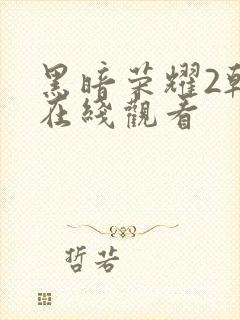 黑暗荣耀2韩
在线觀看
哲若